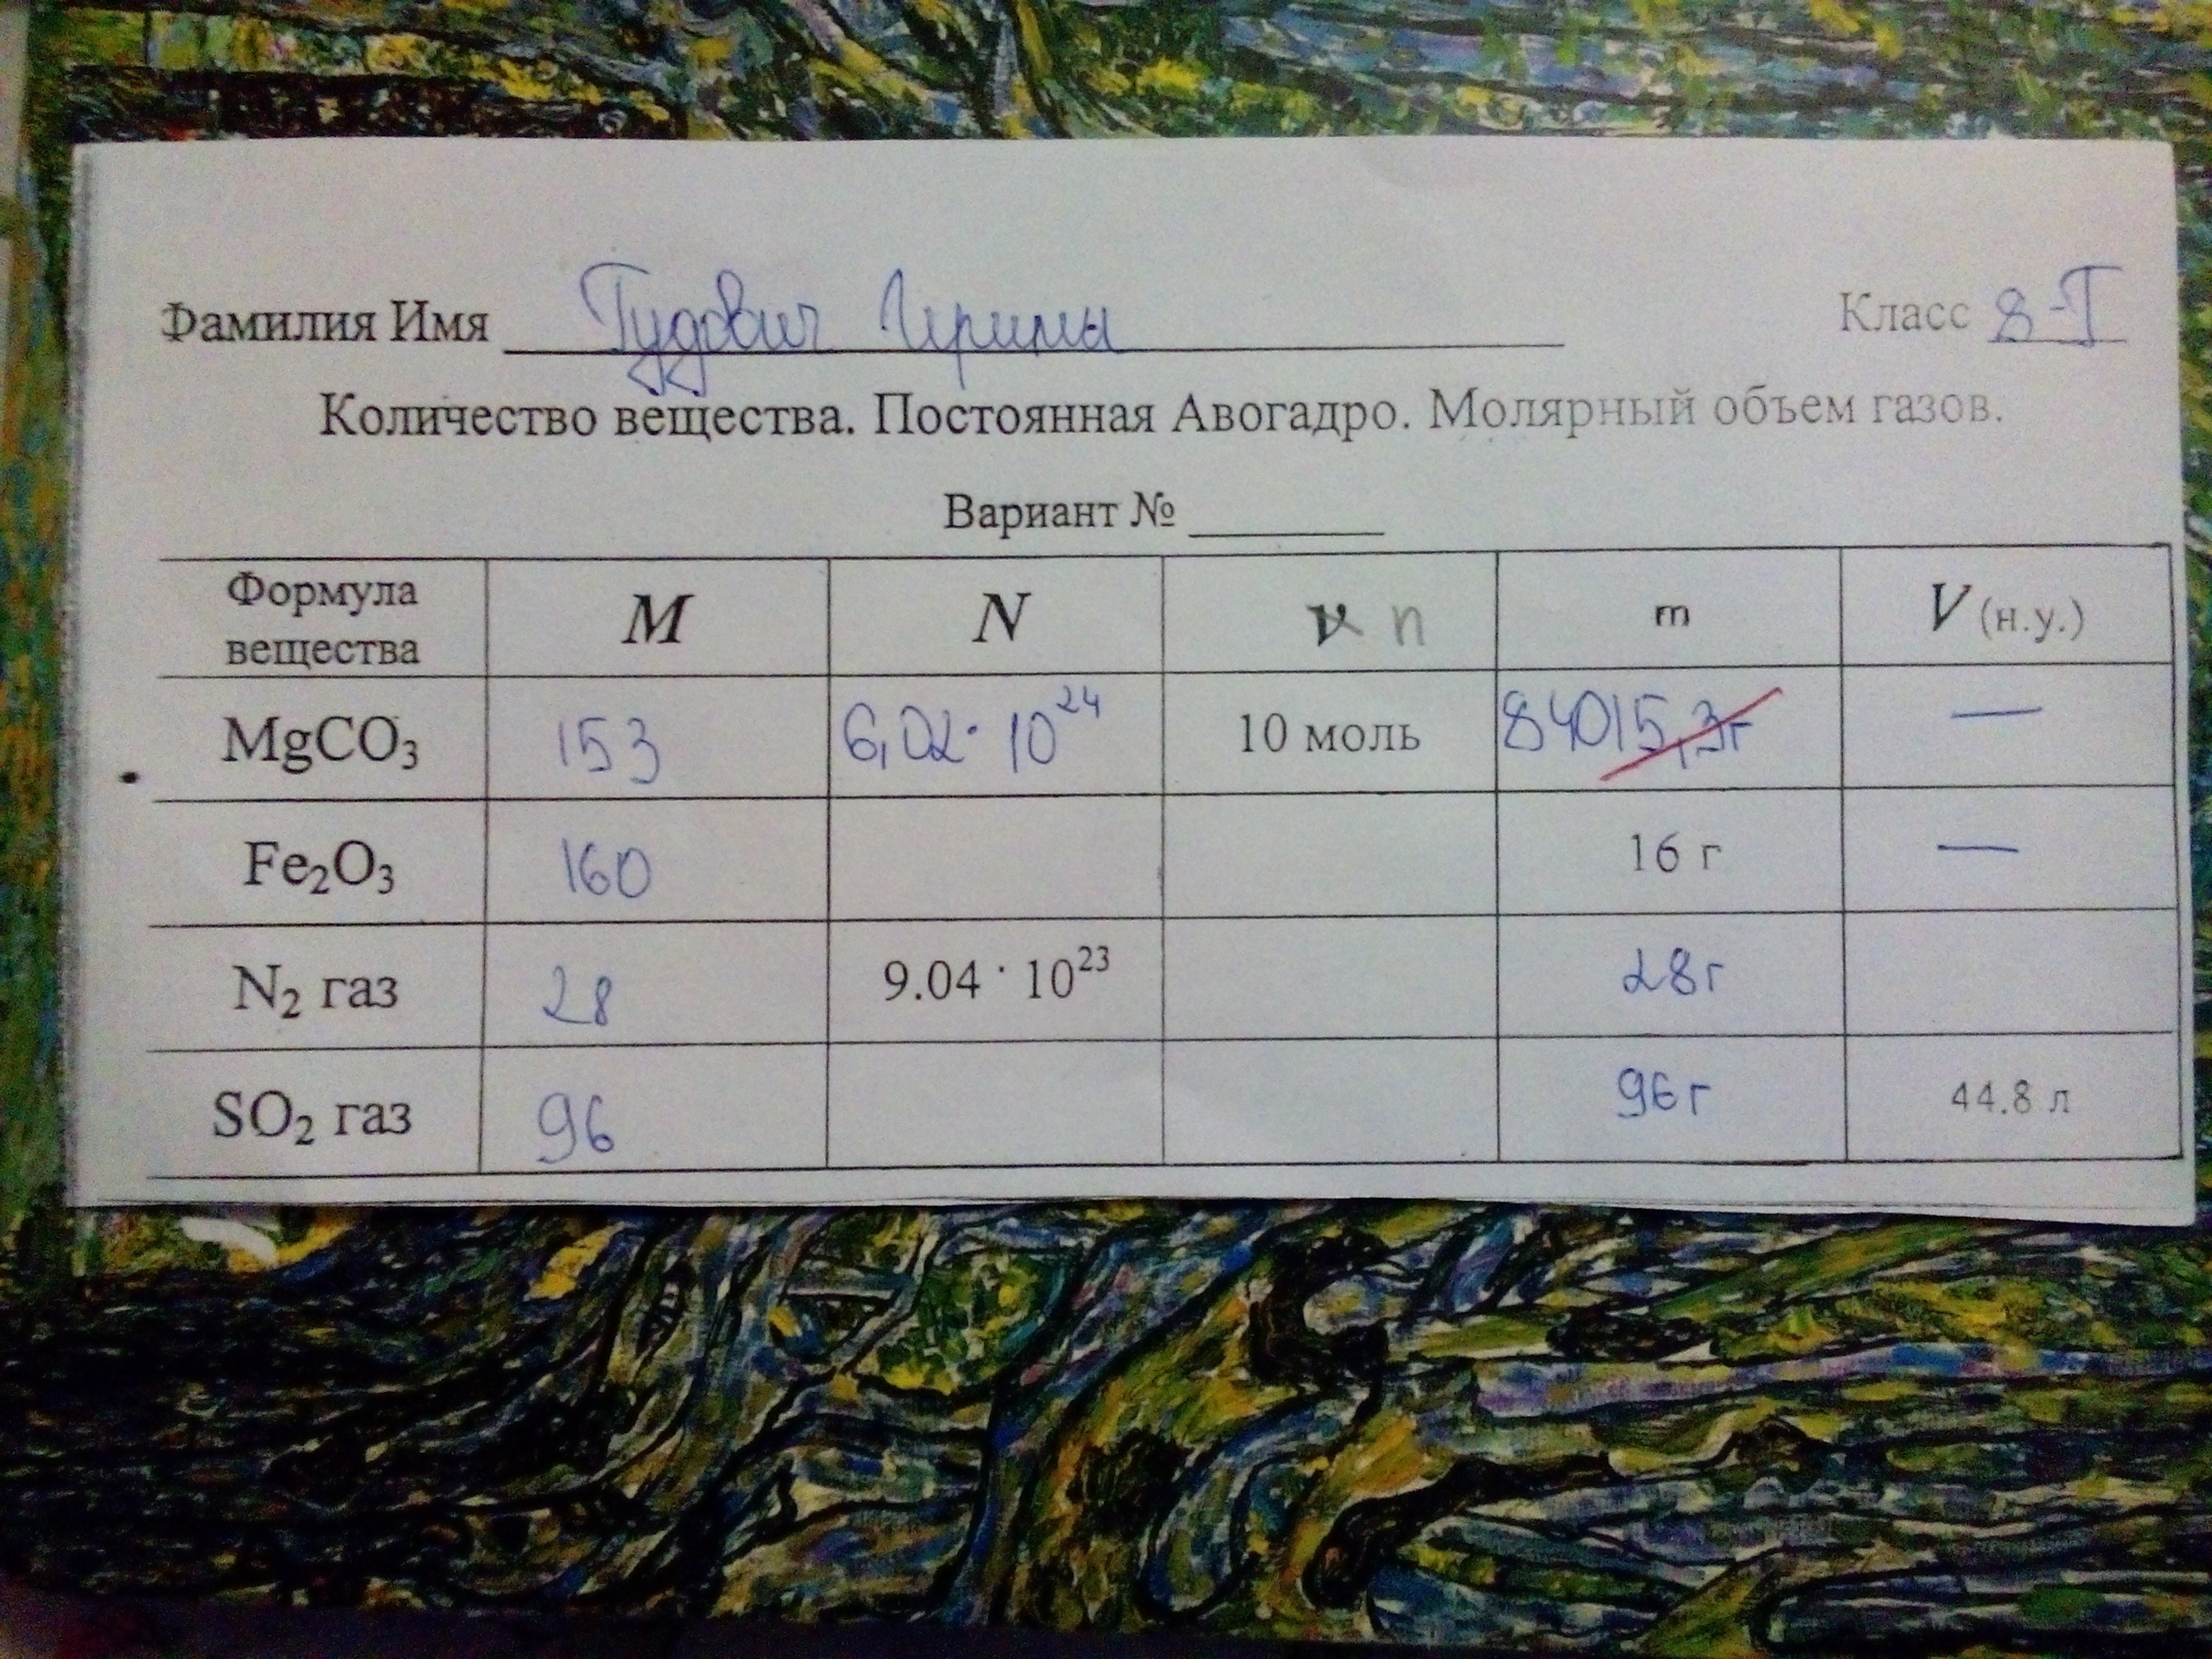 Фамилия Имя Гудович Ирины Класс 8-Г
Количество вещества. Постоянная Авогадро. Молярный объем газов.
Вариант №
Формула вещества M N ν n m V (н.у.)
MgCO₃ 153 6,02 · 10²⁴ 10 моль 84015,3г —
Fe₂O₃ 160 16 г —
N₂ газ 28 9.04 · 10²³ 28г
SO₂ газ 96 96г 44.8 л